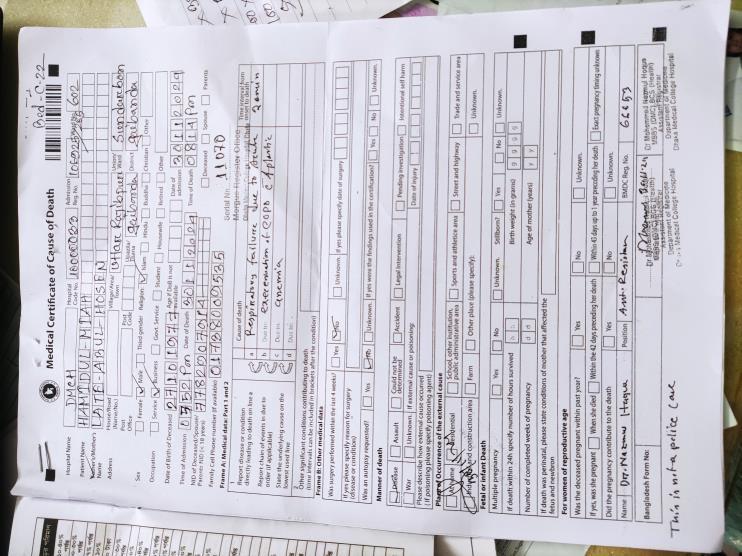 Bed-C-22
Medical Certificate of Cause of Death
Hospital Name DMCH Hospital Code No. 10000033 Admission Reg. No.
Patient Name HAMIDUL MIAH
Name LATE ABUL HOSEN
Address House/Road (Name/No.) Village/Area/Town Union/Ward
Post Office Post Code Upazila/Thana District Gaibandha
Sex Female Male Third gender Religion Islam Hindu Buddha Christian Other
Occupation Service Business Govt. Service Student Housewife Retired Other
Date of Birth of Deceased 07101977 Age if DoB is not available Date of admission 30112024
Time of Admission 0752 Pm Date of Death 30112024 Time of Death 0814 Pm
NID of Deceased/Spouse/Parents NID (< 18 years) Deceased Spouse Parents
Family Cell Phone Number (if available) 01738009535
Serial No. 11070
Frame A: Medical data: Part 1 and 2
1 Report disease or condition directly leading to death on line a
Report chain of events in due to order (if applicable)
State the underlying cause on the lowest used line
Cause of death
Time interval from onset to death
a Respiratory failure due to acute 20min
b exacerbation of COPD c Aplastic
c anemia
d
2 Other significant conditions contributing to death (time intervals can be included in brackets after the condition)
Frame B: Other medical data
Was surgery performed within the last 4 weeks? Yes No Unknown. If yes please specify date of surgery
If yes please specify reason for surgery (disease or condition)
Was an autopsy requested? Yes No Unknown. If yes were the findings used in the certification? Yes No Unknown.
Manner of death
Disease Assault Could not be determined Accident Legal intervention Pending investigation Intentional self harm
War Unknown. If external cause or poisoning: Date of injury
Please describe how external cause occurred (If poisoning please specify poisoning agent)
Place of Occurrence of the external cause
At home Residential School, other institution, public administrative area Sports and athletics area Street and highway Trade and service area
Industrial and construction area Farm Other place (please specify): Unknown.
Fetal or infant Death
Multiple pregnancy Yes No Unknown. Stillborn? Yes No Unknown.
If death within 24h specify number of hours survived h h Birth weight (in grams) g g g g
Number of completed weeks of pregnancy d d Age of mother (years) y y
If death was perinatal, please state conditions of mother that affected the fetus and newborn
For women of reproductive age
Was the deceased pregnant within past year? Yes No Unknown.
If yes, was she pregnant When she died Within the 42 days preceding her death Within 43 days up to 1 year preceding her death Exact pregnancy timing unknown
Did the pregnancy contribute to the death Yes No Unknown.
Name Position BMDC Reg. No. 66653
Bangladesh Form No:
Dr Mohammed Nazmul Hoque
MBBS (DMC), BCS (Health)
Assistant Registrar
Department of Medicine
Dhaka Medical College Hospital
This is not a police case